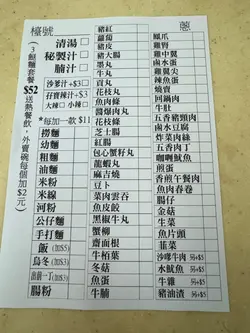 檯號
葱
(3餸麵套餐
$52
送熱餐飲,外賣碗每個加$2元)
清湯
秘製汁
腩汁
沙爹汁+$3
孖寶辣汁+$3
大辣 小辣
*每加一款 $11
撈麵
幼麵
粗麵
油麵
米粉
米線
河粉
公仔麵
手打麵
飯 (加$5)
烏冬 (加$3)
出前一丁(加$3)
腸粉
豬紅
蘿蔔
豬皮
豬大腸
墨丸
牛丸
貢丸
花枝丸
魚肉條
爆漿肉丸
花枝丸
芝士腸
紅腸
包心蟹籽丸
龍蝦丸
麻吉燒
豆卜
菜肉雲吞
魚皮餃
黑椒牛丸
蟹柳
齋面根
牛栢葉
冬菇
魚蛋
牛腩
鳳爪
雞腎
雞中翼
鹵水蛋
雞翼尖
辣魚蛋
燒賣
回鍋肉
牛肚
五香豬頸肉
鹵水豆腐
炸菜肉絲
五香肉丁
咖喱魷魚
煎蛋
香煎午餐肉
魚肉春卷
腸仔
金菇
生菜
魚片頭
韮菜
沙嗲牛肉 另+$5
水魷魚 另+$5
牛雜 另+$5
豬油渣 另+$5